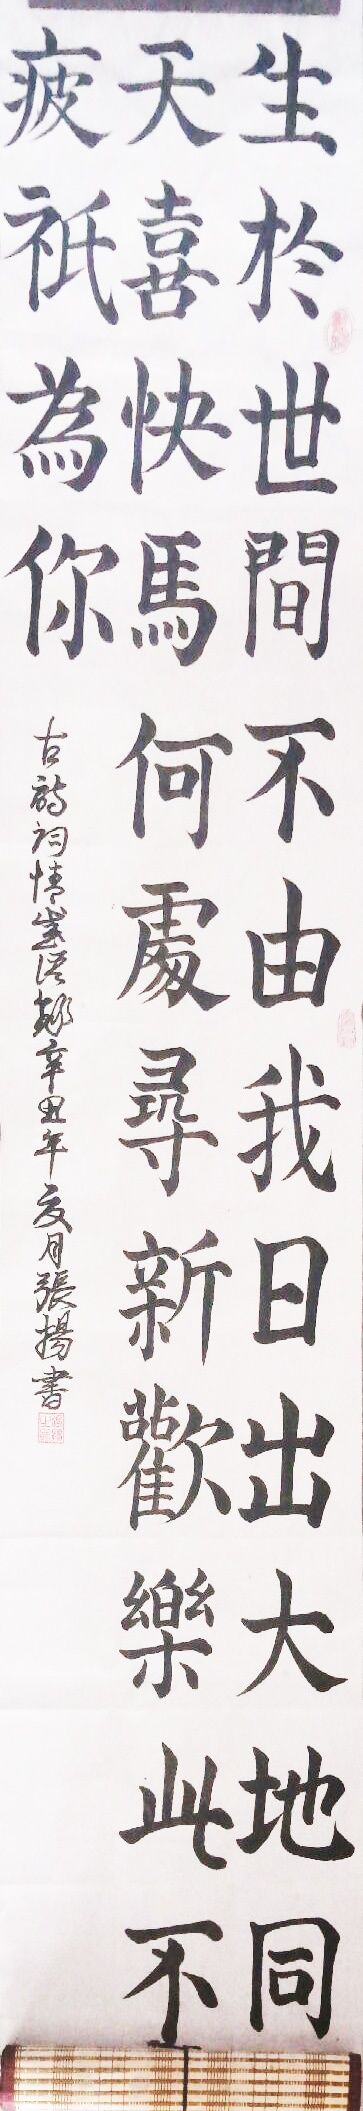 生於世間不由我日出大地同
天喜快馬何處尋新歡樂此不
疲祇為你
古詩詞情
辛丑年夏月張揚書